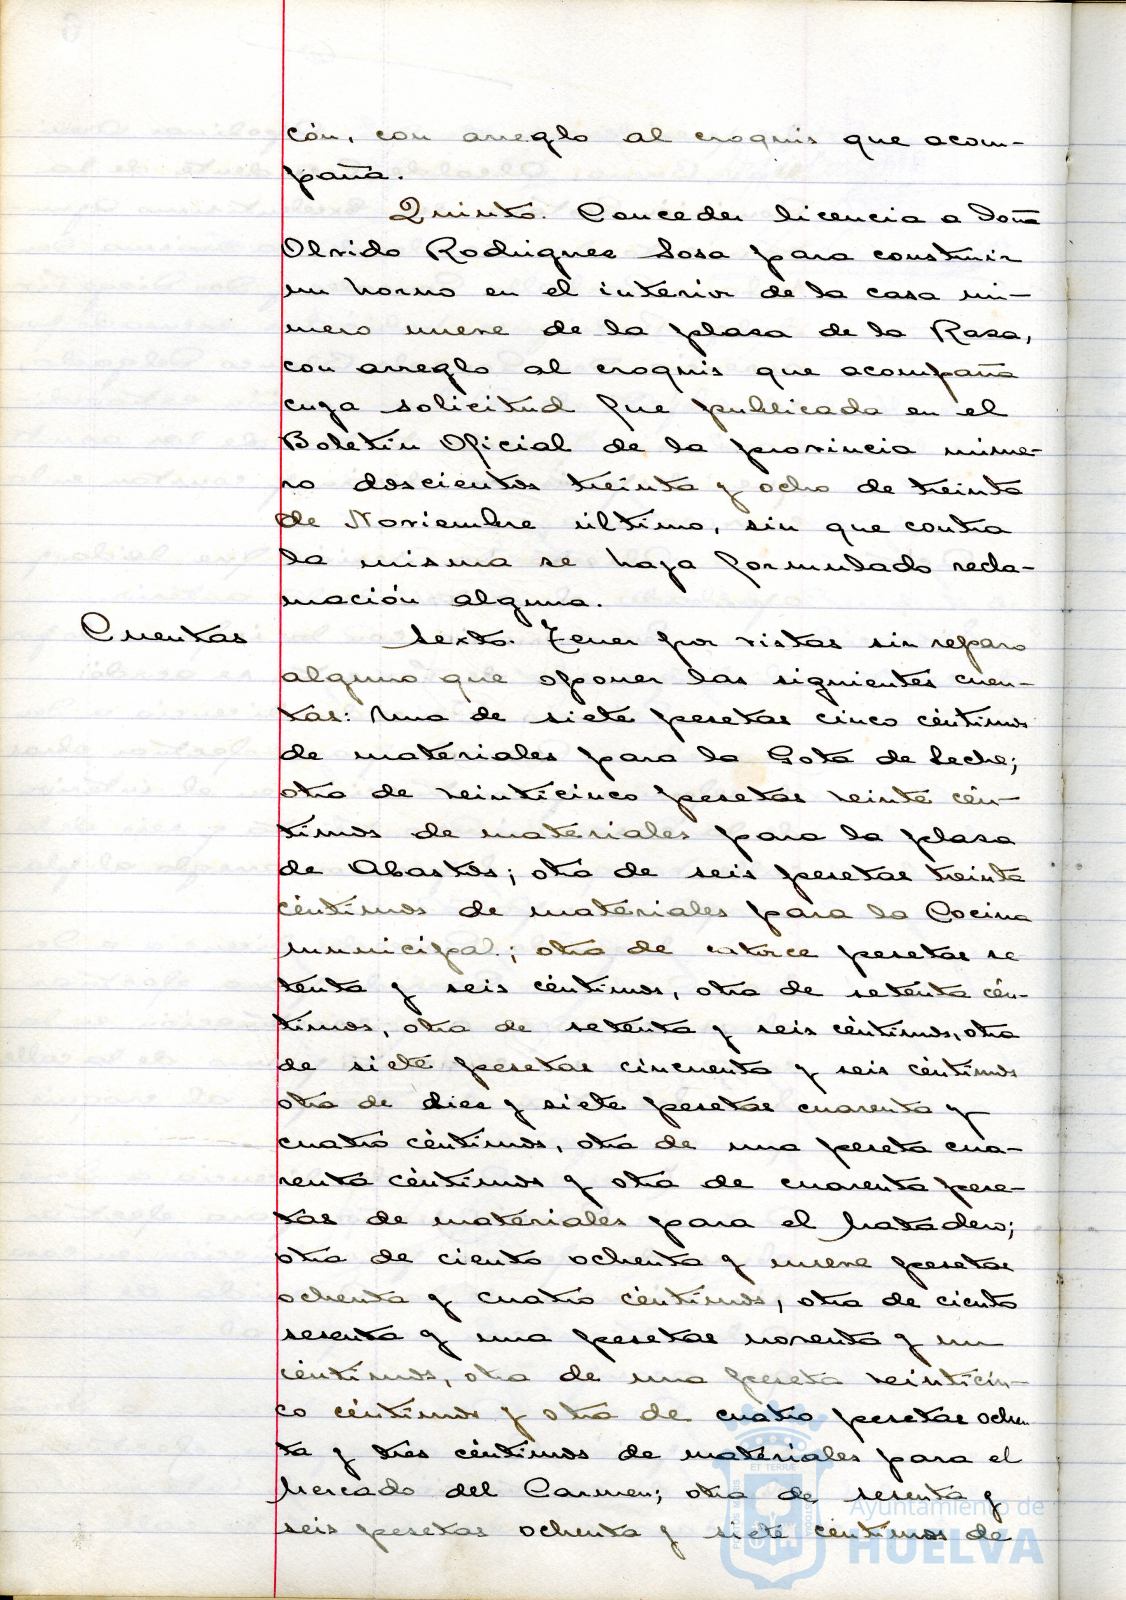 ción, con arreglo al croquis que acom-
paña.
Quinto. Conceder licencia a Doña
Olvido Rodriguez Sosa para construir
un horno en el interior de la casa nú-
mero nueve de la plaza de la Rasa,
con arreglo al croquis que acompaña
cuya solicitud fue publicada en el
Boletín Oficial de la provincia núme-
ro doscientos treinta y ocho de treinta
de Noviembre último, sin que contra
la misma se haya formulado recla-
mación alguna.
Cuentas
Sexto. Tener por vistas sin reparo
alguno que oponer las siguientes cuen-
tas: Una de siete pesetas cinco céntimos
de materiales para la Gota de Leche;
otra de veinticinco pesetas veinte cén-
timos de materiales para la plaza
de Abastos; otra de seis pesetas treinta
céntimos de materiales para la Cocina
municipal; otra de catorce pesetas se
tenta y seis céntimos, otra de setenta cén-
timos, otra de setenta y seis céntimos, otra
de siete pesetas cincuenta y seis céntimos
otra de diez y siete pesetas cuarenta y
cuatro céntimos, otra de una peseta cua-
renta céntimos y otra de cuarenta pese-
tas de materiales para el Matadero;
otra de ciento ochenta y nueve pesetas
ochenta y cuatro céntimos, otra de ciento
sesenta y una pesetas noventa y un
céntimos, otra de una peseta veinticin-
co céntimos y otra de cuatro pesetas ochen
ta y tres céntimos de materiales para el
Mercado del Carmen; otra de sesenta y
seis pesetas ochenta y siete céntimos de
Ayuntamiento de
HUELVA